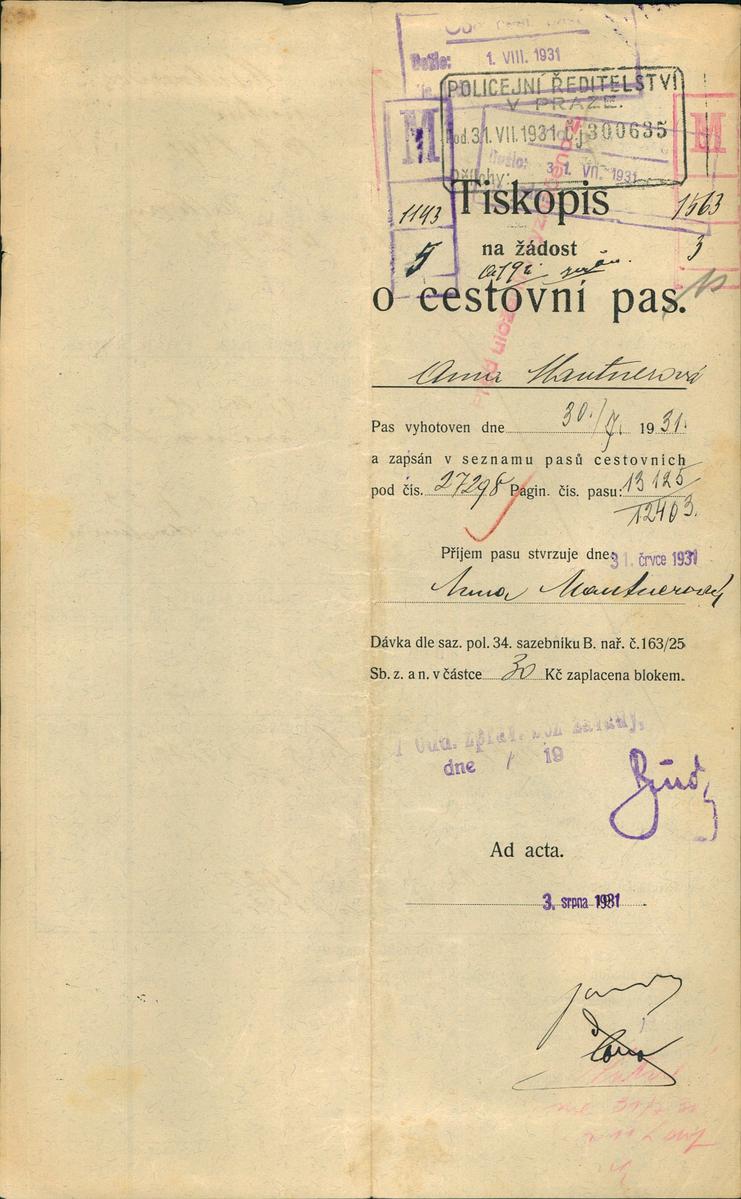 Došlo:
1. VIII. 1931
POLICEJNÍ ŘEDITELSTVÍ
V PRAZE.
Pod. 31. VII. 1931 Čj 300635
Došlo: 31. VII. 1931
Přílohy:
M
M
1143
5
1563
3
Tiskopis
na žádost
o cestovní pas.
Anna Mautnerová
Pas vyhotoven dne 30./7. 1931.
a zapsán v seznamu pasů cestovních
pod čís. 27298 Pagin. čís. pasu: 13125
12403.
Příjem pasu stvrzuje dne 31. črvce 1931
Anna Mautnerová
Dávka dle saz. pol. 34. sazebníku B. nař. č. 163/25
Sb. z. a n. v částce 30 Kč zaplacena blokem.
odd. zpráv. bez závady.
dne 19
Ad acta.
3. srpna 1931